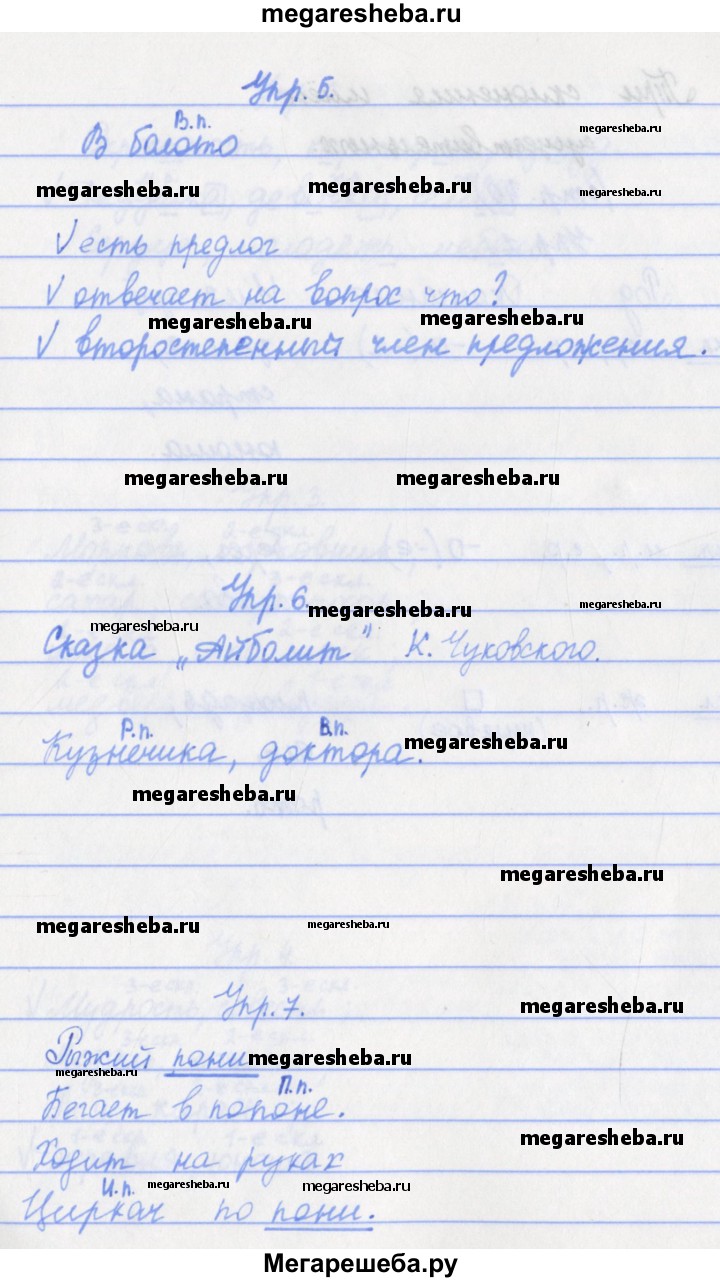 megaresheba.ru
Упр. 5.
В.п.
В болото
megaresheba.ru
megaresheba.ru megaresheba.ru megaresheba.ru
√ есть предлог
√ отвечает на вопрос что?
megaresheba.ru megaresheba.ru
√ второстепенный член предложения.
megaresheba.ru megaresheba.ru
Упр. 6.
megaresheba.ru megaresheba.ru
megaresheba.ru
Сказка „Айболит" К. Чуковского.
Р.п. В.п.
Кузнечика, доктора.
megaresheba.ru
megaresheba.ru
megaresheba.ru
megaresheba.ru megaresheba.ru
Упр. 7.
megaresheba.ru
Рыжий пони
megaresheba.ru
megaresheba.ru
П.п.
Бегает в попоне.
megaresheba.ru
Ходит на руках
И.п.
megaresheba.ru megaresheba.ru
Циркач по пони.
Мегарешеба.ру